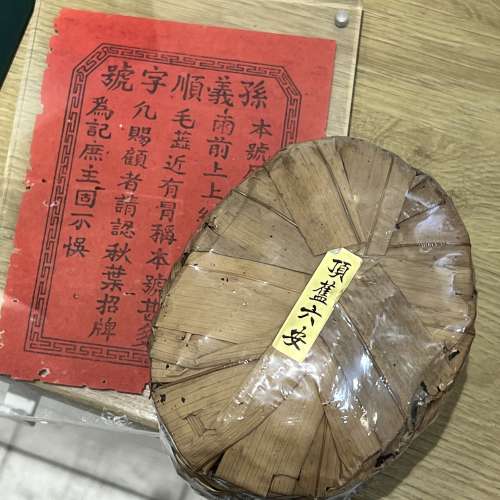 孫義順字號
本號
雨前上上
毛 近有冒稱本號甚多
凡賜顧者請認秋葉招牌
為記庶主固不悞
頂舊六安